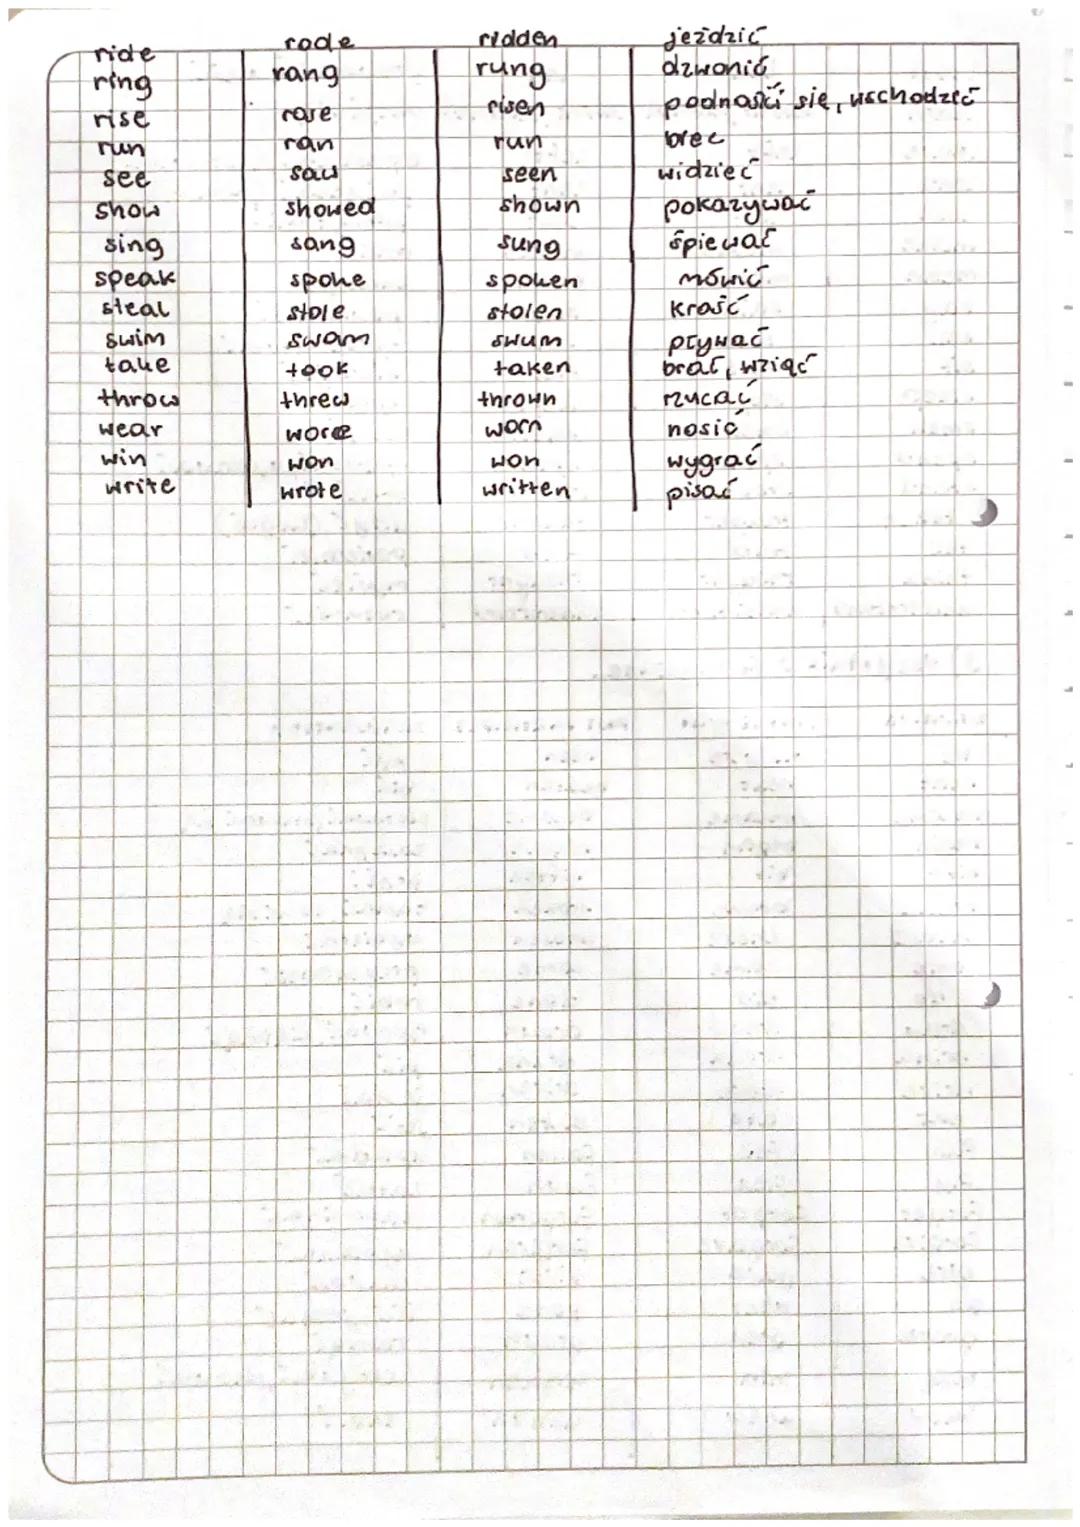 ride rode ridden jeździć
ring rang rung dzwonić
rise rose risen podnosić się, wschodzić
run ran run biec
see saw seen widzieć
show showed shown pokazywać
sing sang sung śpiewać
speak spoke spoken mówić
steal stole stolen kraść
swim swam swum pływać
take took taken brać, wziąć
throw threw thrown rzucać
wear wore worn nosić
win won won wygrać
write wrote written pisać